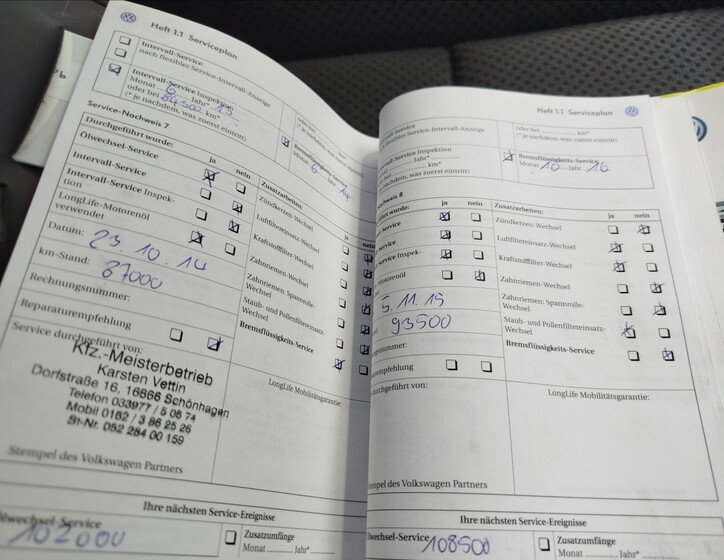 Heft 1.1 Serviceplan
Intervall-Service
nach flexibler Service-Intervall-Anzeige
Intervall-Service Inspektion
Monat 6 Jahr* 15
oder bei 84500 km*
(* je nachdem, was zuerst eintritt)
Monat 6 Jahr
Service-Nachweis 7
Durchgeführt wurde:
ja nein
Ölwechsel-Service
Intervall-Service
Intervall-Service Inspek-
tion
LongLife-Motorenöl
verwendet
Datum: 23.10.14
km-Stand: 87000
Rechnungsnummer:
Reparaturempfehlung
Service durchgeführt von:
Kfz.-Meisterbetrieb
Karsten Vettin
Dorfstraße 16, 16866 Schönhagen
Telefon 033977 / 5 08 74
Mobil 0162 / 3 86 25 26
St-Nr. 052 284 00 159
Stempel des Volkswagen Partners
Zusatzarbeiten:
ja
Zündkerzen-Wechsel
Luftfiltereinsatz-Wechsel
Kraftstofffilter-Wechsel
Zahnriemen-Wechsel
Zahnriemen-Spannrolle-
Wechsel
Staub- und Pollenfiltereinsatz-
Wechsel
Bremsflüssigkeits-Service
LongLife Mobilitätsgarantie:
Ihre nächsten Service-Ereignisse
102000
Zusatzumfänge
Monat Jahr*
Heft 1.1 Serviceplan
-Service
Service-Intervall-Anzeige
-Service Inspektion
Jahr*
km*
nachdem, was zuerst eintritt)
oder bei km*
(* je nachdem, was zuerst eintritt)
Bremsflüssigkeits-Service
Monat 10 Jahr 16
Nachweis 8
wurde:
ja nein
Service
Service
Service Inspek-
Motorenöl
5.11.15
93500
nummer:
empfehlung
durchgeführt von:
Stempel des Volkswagen Partners
Zusatzarbeiten:
ja nein
Zündkerzen-Wechsel
Luftfiltereinsatz-Wechsel
Kraftstofffilter-Wechsel
Zahnriemen-Wechsel
Zahnriemen-Spannrolle-
Wechsel
Staub- und Pollenfiltereinsatz-
Wechsel
Bremsflüssigkeits-Service
LongLife Mobilitätsgarantie:
Ihre nächsten Service-Ereignisse
Ölwechsel-Service
108500
Zusatzumfänge
Monat Jahr*